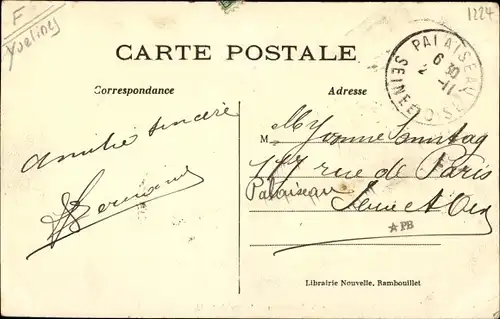 F
Yvelines
1224
CARTE POSTALE
PALAISEAU
6 30
2 -11
SEINE ET OISE
Correspondance
Adresse
Amitié sincère
M Yvonne Sonntag
117 rue de Paris
Palaiseau
Seine et Oise
☆PB
Librairie Nouvelle, Rambouillet